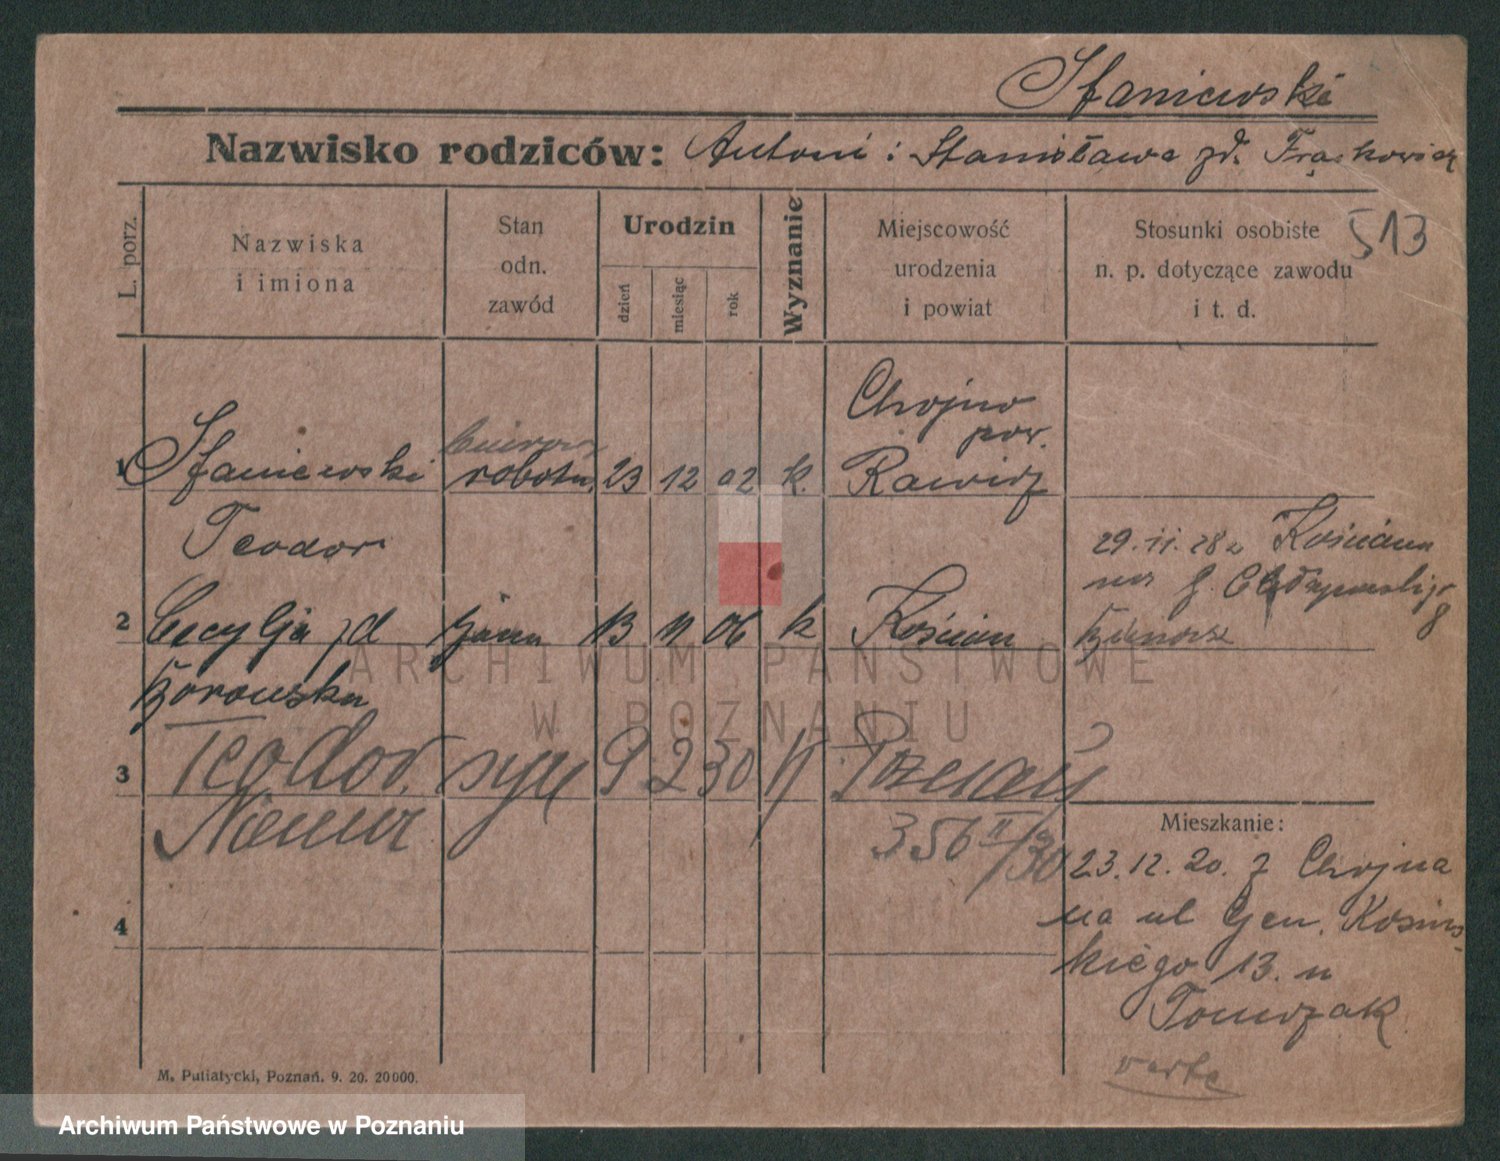 Sfaniewski
Nazwisko rodziców: Antoni i Stanisława zd. Frąckowiak
L. porz.
Nazwiska
i imiona
Stan
odn.
zawód
Urodzin
dzień
miesiąc
rok
Wyznanie
Miejscowość
urodzenia
i powiat
Stosunki osobiste
n. p. dotyczące zawodu
i t. d.
513
Chojno
pow.
1 Sfaniewski robotn. 23 12 02 k. Rawicz
Teodor
29.11.28 z Kościana
2 Cecylja zd żona 13 11 06 k Kościan
Borowska
3 Teodor syn 9 2 30 Poznań
356 II/30
Mieszkanie:
23.12.20. z Chojna
na ul Gen. Kosińs-
4
kiego 13. u
Tomczak
verte
M. Putiatycki, Poznań. 9. 20. 20000.
ARCHIWUM PAŃSTWOWE
W POZNANIU
Archiwum Państwowe w Poznaniu